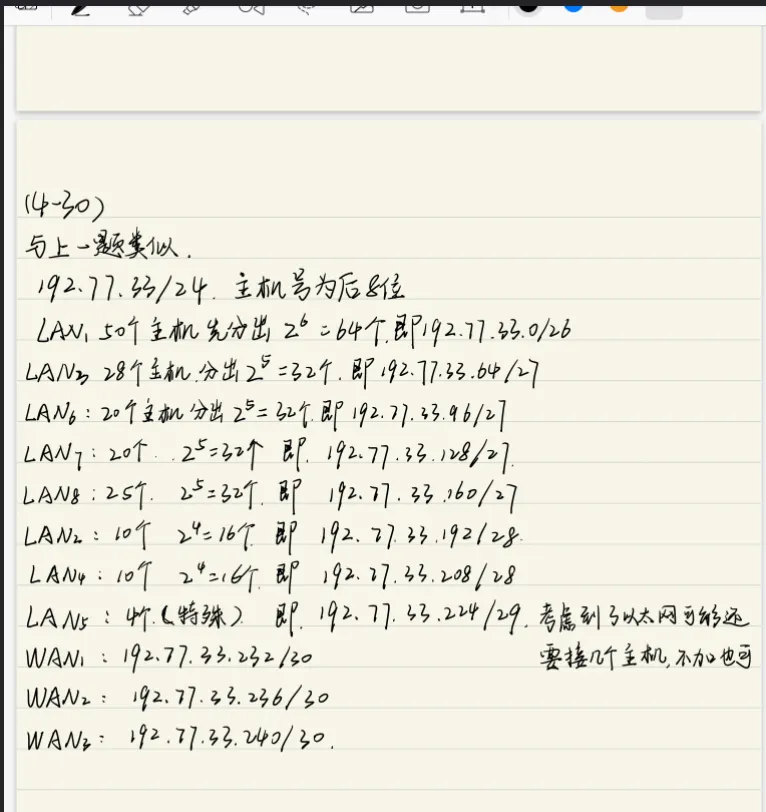 (4-30)
与上一题类似.
192.77.33/24. 主机号为后8位
LAN₁ 50个主机 先分出 2⁶=64个,即192.77.33.0/26
LAN₃ 28个主机.分出2⁵=32个.即192.77.33.64/27
LAN₆: 20个主机 分出2⁵=32个.即 192.77.33.96/27
LAN₇: 20个. 2⁵=32个 即. 192.77.33.128/27.
LAN₈: 25个. 2⁵=32个.即 192.77.33.160/27
LAN₂: 10个 2⁴=16个 即 192.77.33.192/28.
LAN₄: 10个 2⁴=16个.即 192.77.33.208/28
LAN₅: 4个.(特殊) 即. 192.77.33.224/29. 考虑到了以太网可能还
要接几个主机,不加也可
WAN₁: 192.77.33.232/30
WAN₂: 192.77.33.236/30
WAN₃: 192.77.33.240/30.